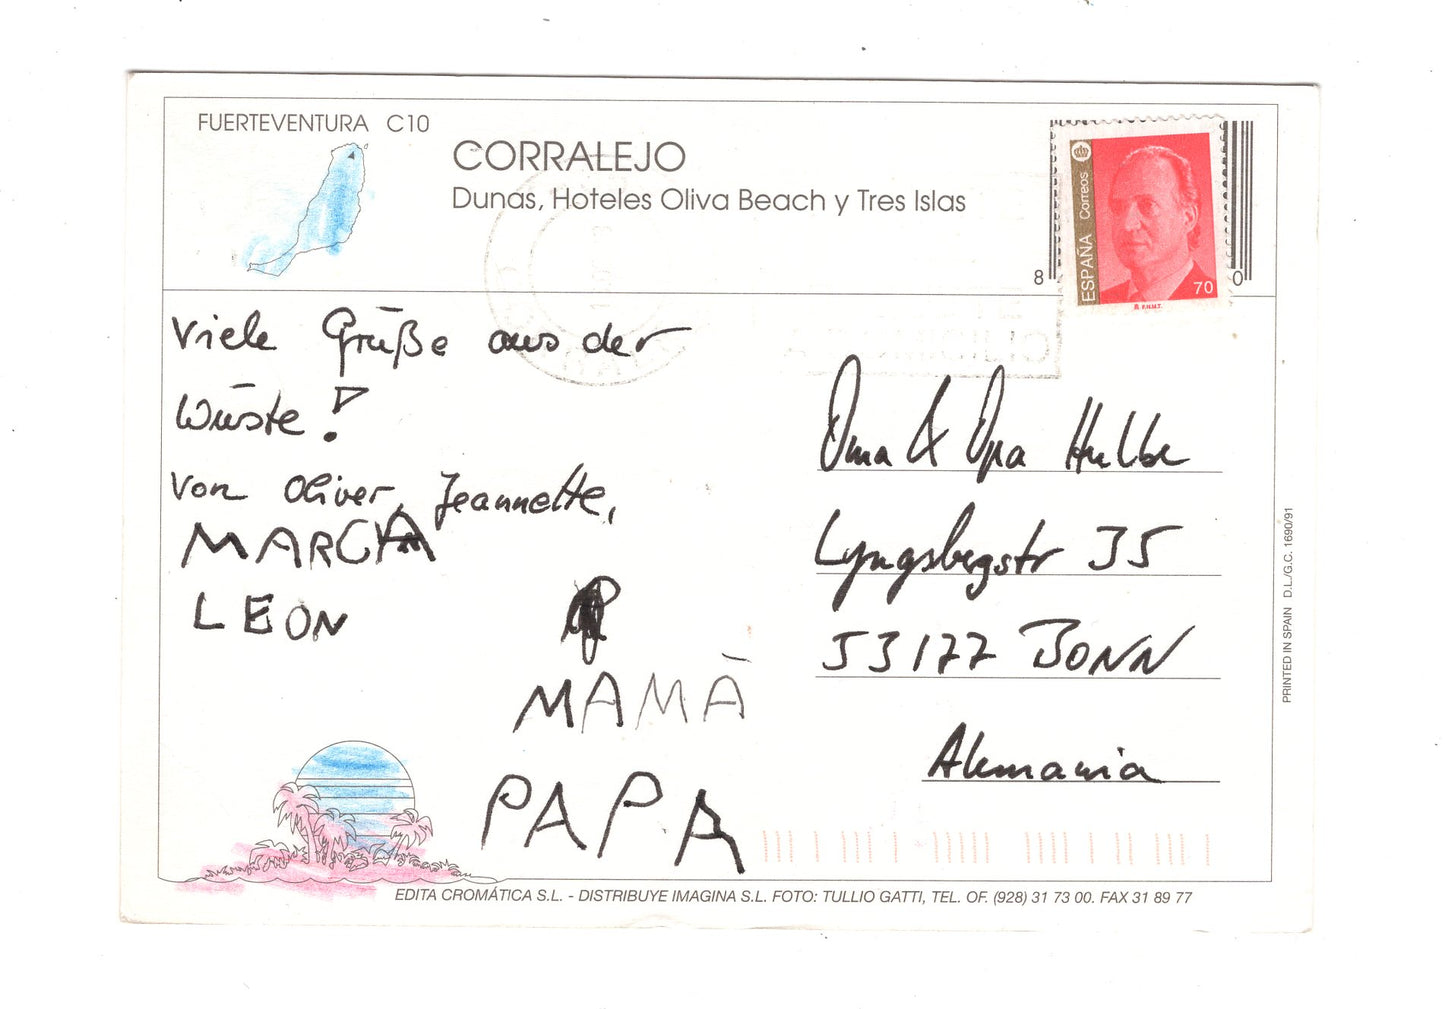 FUERTEVENTURA C10
CORRALEJO
Dunas, Hoteles Oliva Beach y Tres Islas
ESPAÑA Correos
70
F.N.M.T.
8
0
Viele Grüße aus der
Wüste!
von Oliver, Jeannette,
MARCIA
LEON
MAMA
PAPA
Oma & Opa Hulbe
Lyngsbergstr 35
53177 BONN
Alemania
PRINTED IN SPAIN D.L./G.C. 1690/91
EDITA CROMÁTICA S.L. - DISTRIBUYE IMAGINA S.L. FOTO: TULLIO GATTI, TEL. OF. (928) 31 73 00. FAX 31 89 77